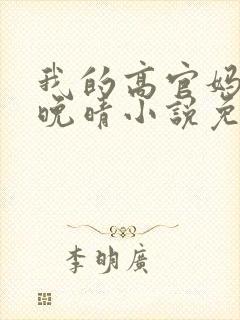 我的高官妈
晚晴小说免
李明广